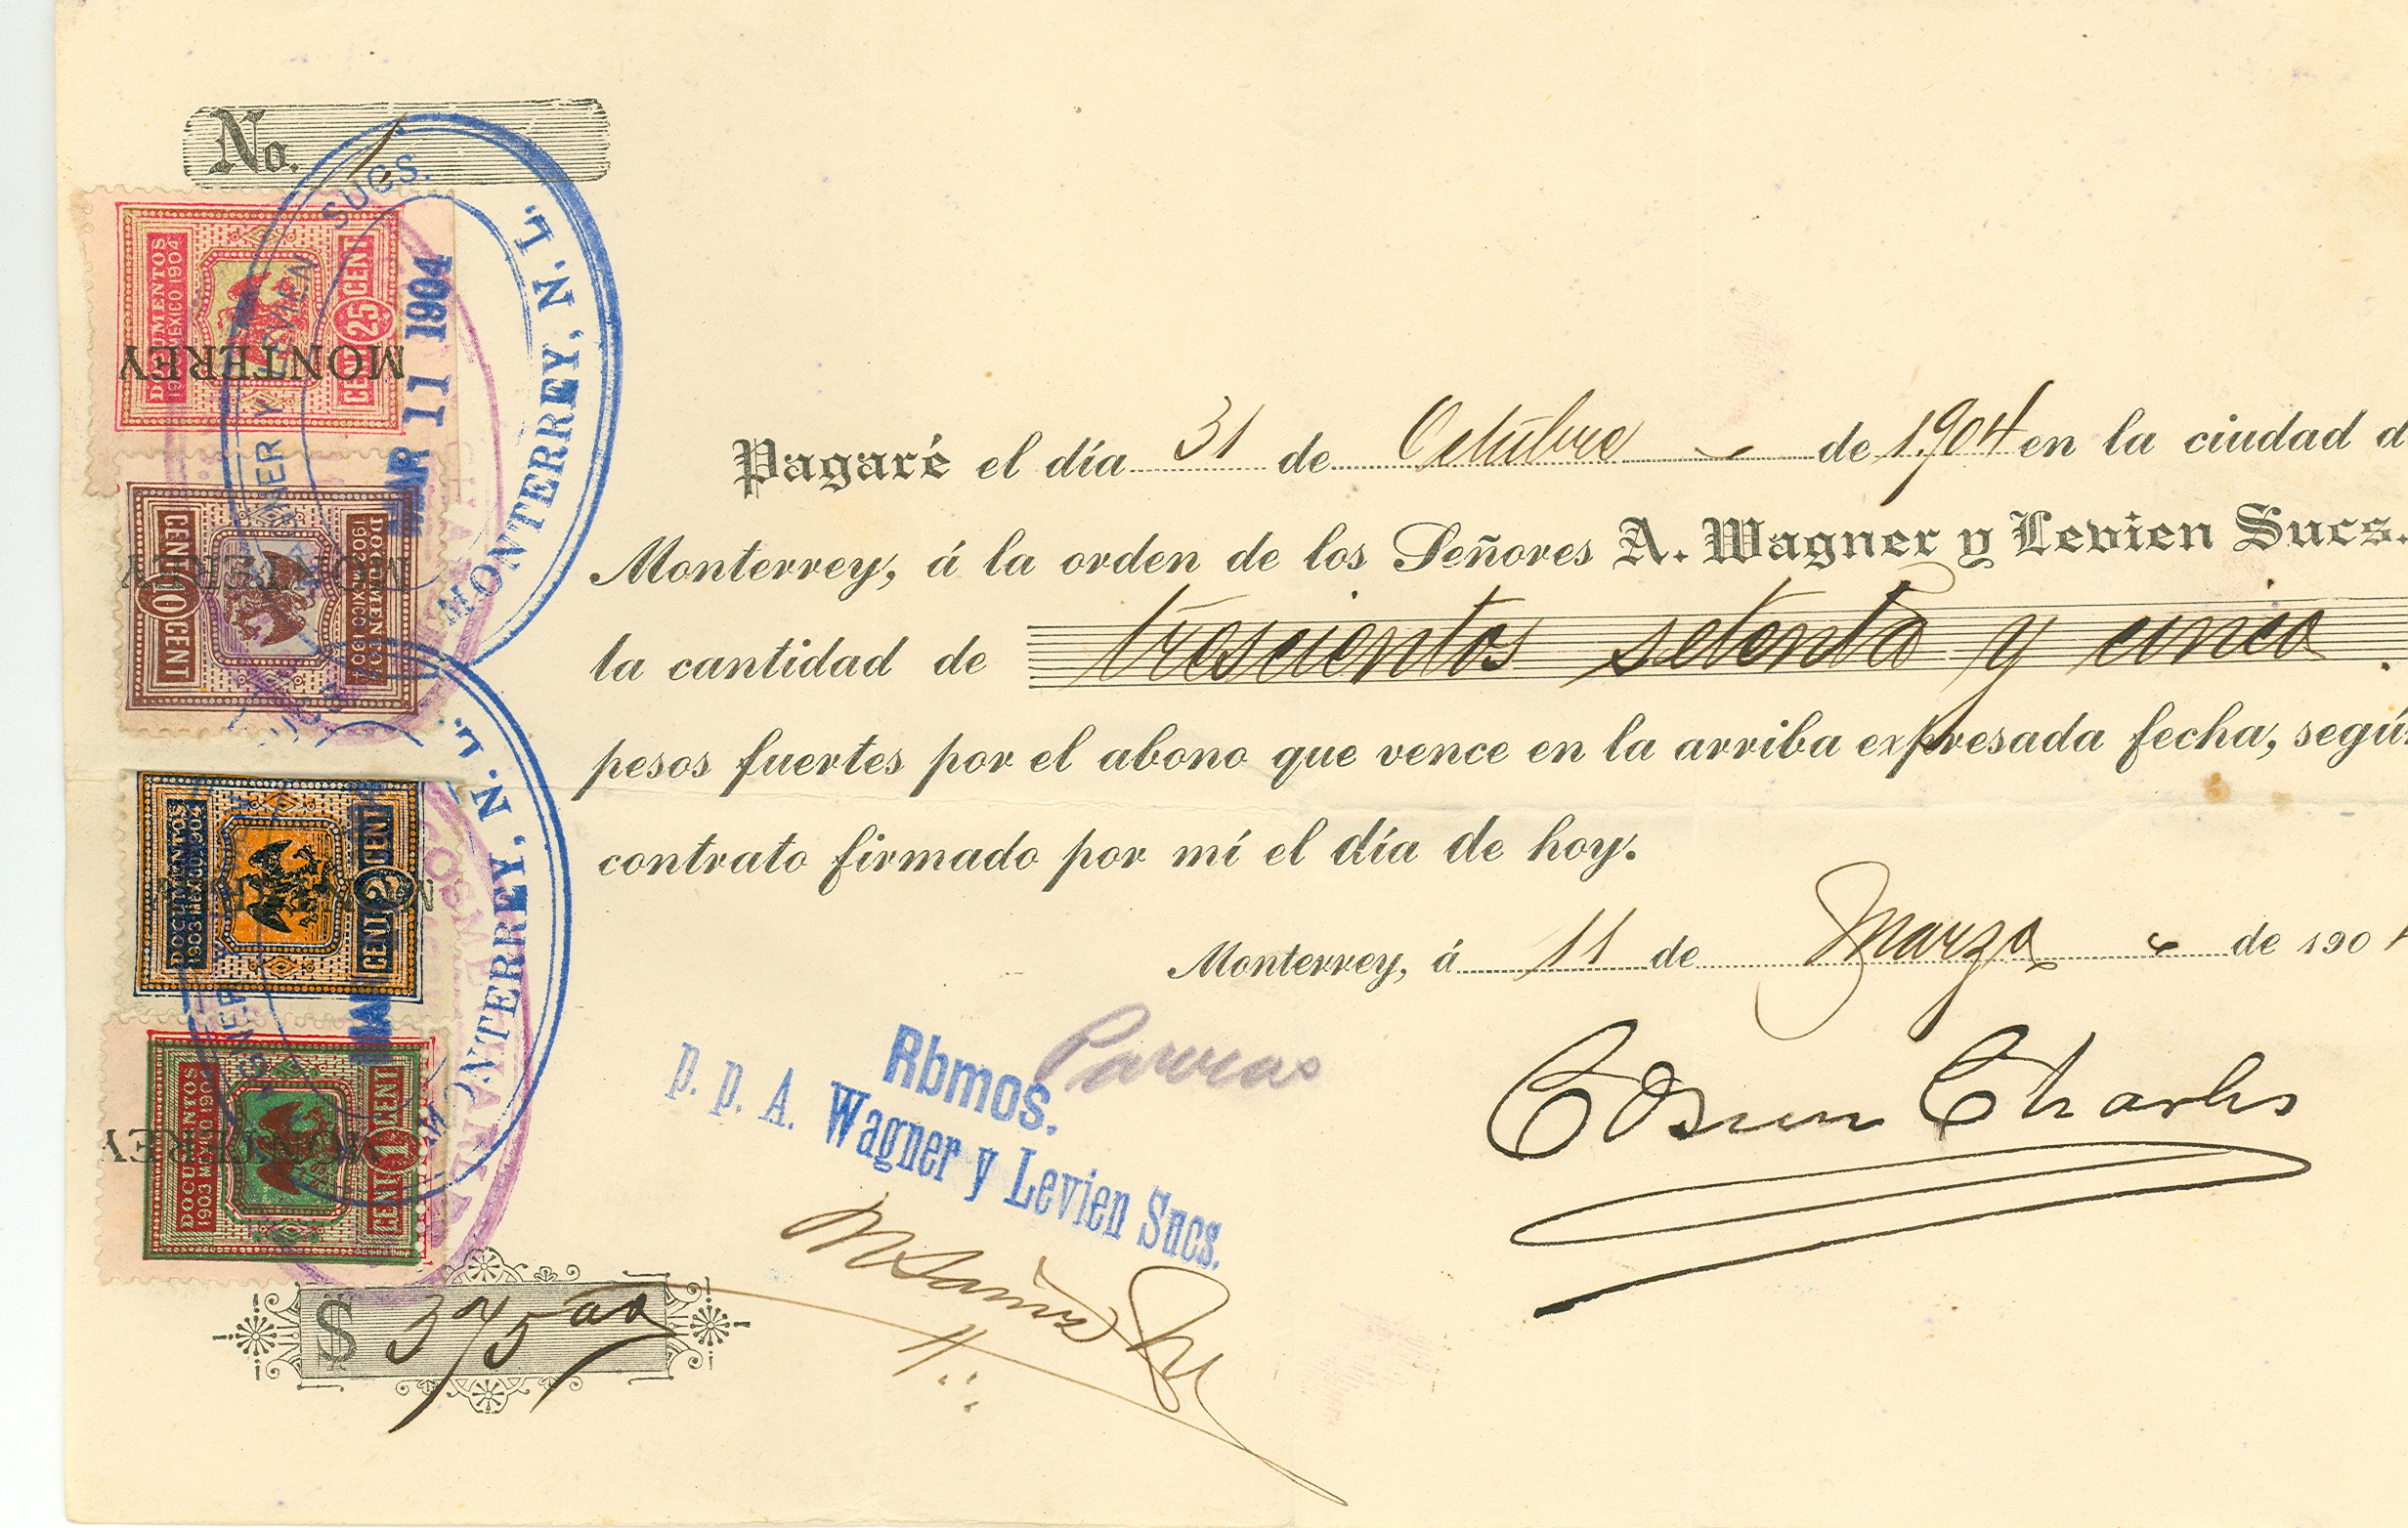 No. 1
SUCS.
WAGNER Y LEVIEN
MONTERREY, N. L.
MAR 11 1904
DOCUMENTOS
1903 MEXICO 1904
CENT 25 CENT
MONTEREY
DOCUMENTOS
1903 MEXICO 1904
CENT 10 CENT
MONTEREY
DOCUMENTOS
1903 MEXICO 1904
CENT 2 CENT
MONTERREY, N. L.
DOCUMENTOS
1903 MEXICO 1904
CENT 1 CENT
MONTEREY
Pagaré el día 31 de Octubre de 1904 en la ciudad d
Monterrey, á la orden de los Señores A. Wagner y Levien Sucs.
la cantidad de trescientos setenta y cinco
pesos fuertes por el abono que vence en la arriba expresada fecha, segú
contrato firmado por mí el día de hoy.
Monterrey, á 11 de Marzo de 190
Rbmos.
p. p. A. Wagner y Levien Sucs.
Charles
$ 375 00